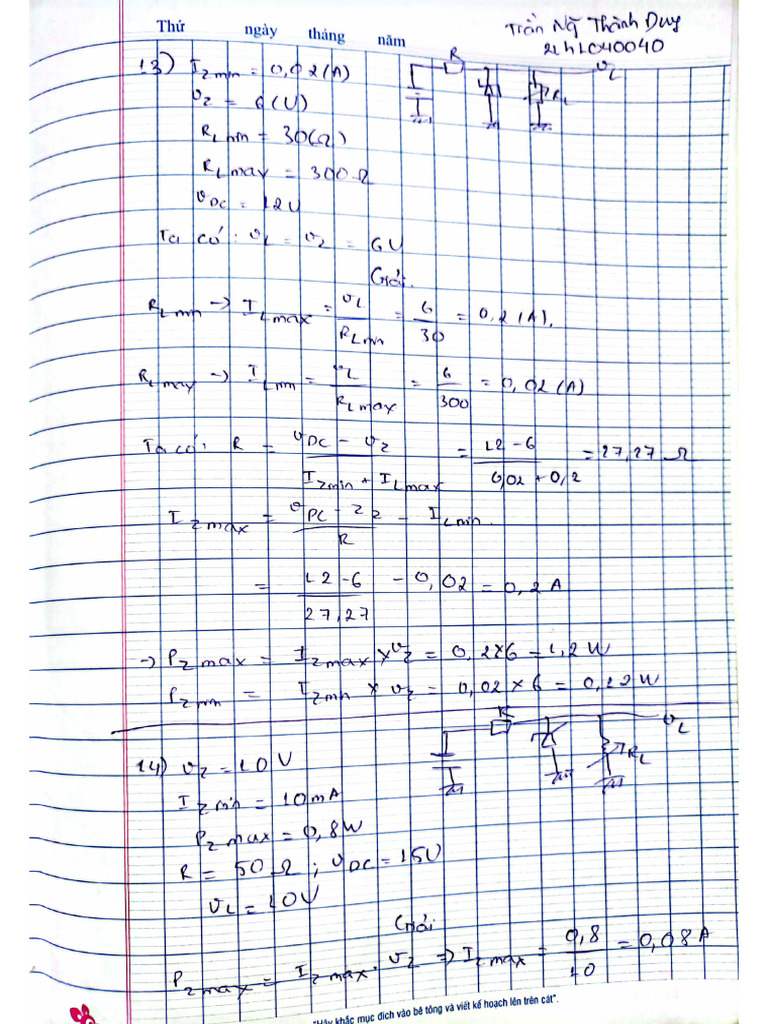 Thứ ngày tháng năm
Trần Ng Thành Duy
21h1040040
13) Izmin = 0,02(A)
R
vL
vz = 6(V)
RL
RLmin = 30(Ω)
RLmax = 300Ω
vDC = 12V
Ta có: vL = vz = 6V
Giải.
RLmin → ILmax = vL/RLmin = 6/30 = 0,2(A).
RLmax → ILmin = vL/RLmax = 6/300 = 0,02(A)
Ta có: R = (vDC - vz)/(Izmin + ILmax) = (12-6)/(0,02+0,2) = 27,27 Ω
Izmax = (vDC - vz)/R - ILmin.
= (12-6)/27,27 - 0,02 = 0,2A
→ Pzmax = Izmax × vz = 0,2×6 = 1,2W
Pzmin = Izmin × vz = 0,02×6 = 0,12W
R
vL
14) vz = 10V
RL
Izmin = 10mA
Pzmax = 0,8W
R = 50Ω ; vDC = 15V
vL = 10V
Giải
Pzmax = Izmax . vz => Izmax = 0,8/10 = 0,08A
"Hãy khắc mục đích vào bê tông và viết kế hoạch lên trên cát".